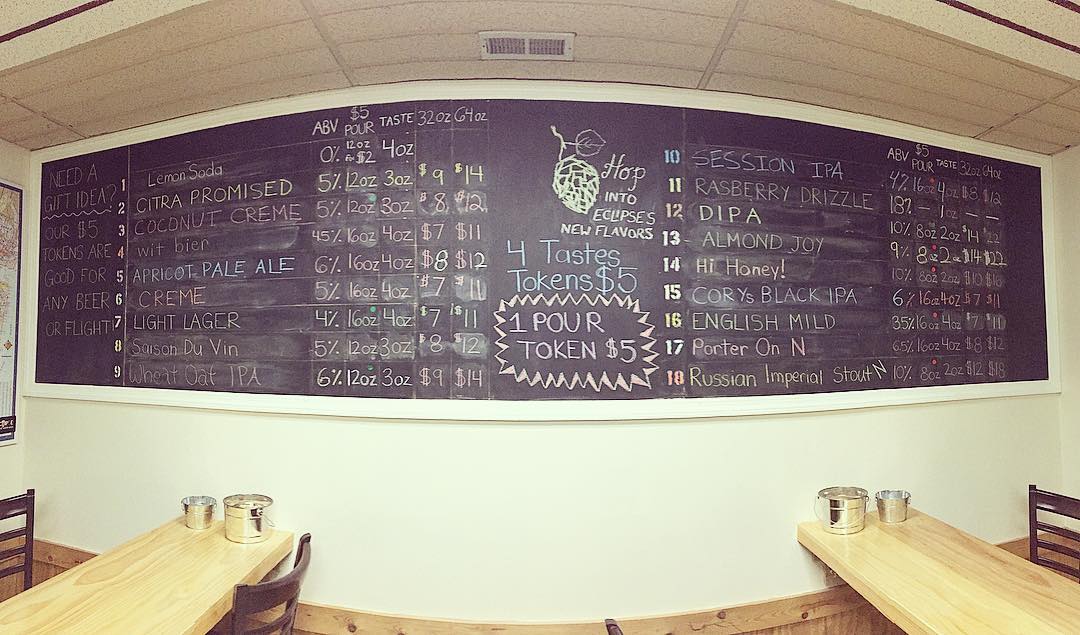 NEED A
GIFT IDEA?
OUR $5
TOKENS ARE
GOOD FOR
ANY BEER
OR FLIGHT!
ABV $5 POUR TASTE 32oz 64oz
1 Lemon Soda 0% 12oz for $2 4oz
2 CITRA PROMISED 5% 12oz 3oz $9 $14
3 COCONUT CREME 5% 12oz 3oz $8 $12
4 wit bier 4.5% 16oz 4oz $7 $11
5 APRICOT PALE ALE 6% 16oz 4oz $8 $12
6 CREME 5% 16oz 4oz $7 $11
7 LIGHT LAGER 4% 16oz 4oz $7 $11
8 Saison Du Vin 5% 12oz 3oz $8 $12
9 Wheat Oat IPA 6% 12oz 3oz $9 $14
Hop
INTO
ECLIPSES
NEW FLAVORS
4 Tastes
Tokens $5
1 POUR
TOKEN $5
ABV $5 POUR TASTE 32oz 64oz
10 SESSION IPA 4% 16oz 4oz $8 $12
11 RASBERRY DRIZZLE 18% — 1oz — —
12 DIPA 10% 8oz 2oz $14 $22
13 ALMOND JOY 9% 8oz 2oz $14 $22
14 Hi Honey! 10% 8oz 2oz
15 CORYs BLACK IPA 6% 16oz 4oz $7 $11
16 ENGLISH MILD 3.5% 16oz 4oz $7 $11
17 Porter On N 6.5% 16oz 4oz $8 $12
18 Russian Imperial Stout N 10% 8oz 2oz $12 $18